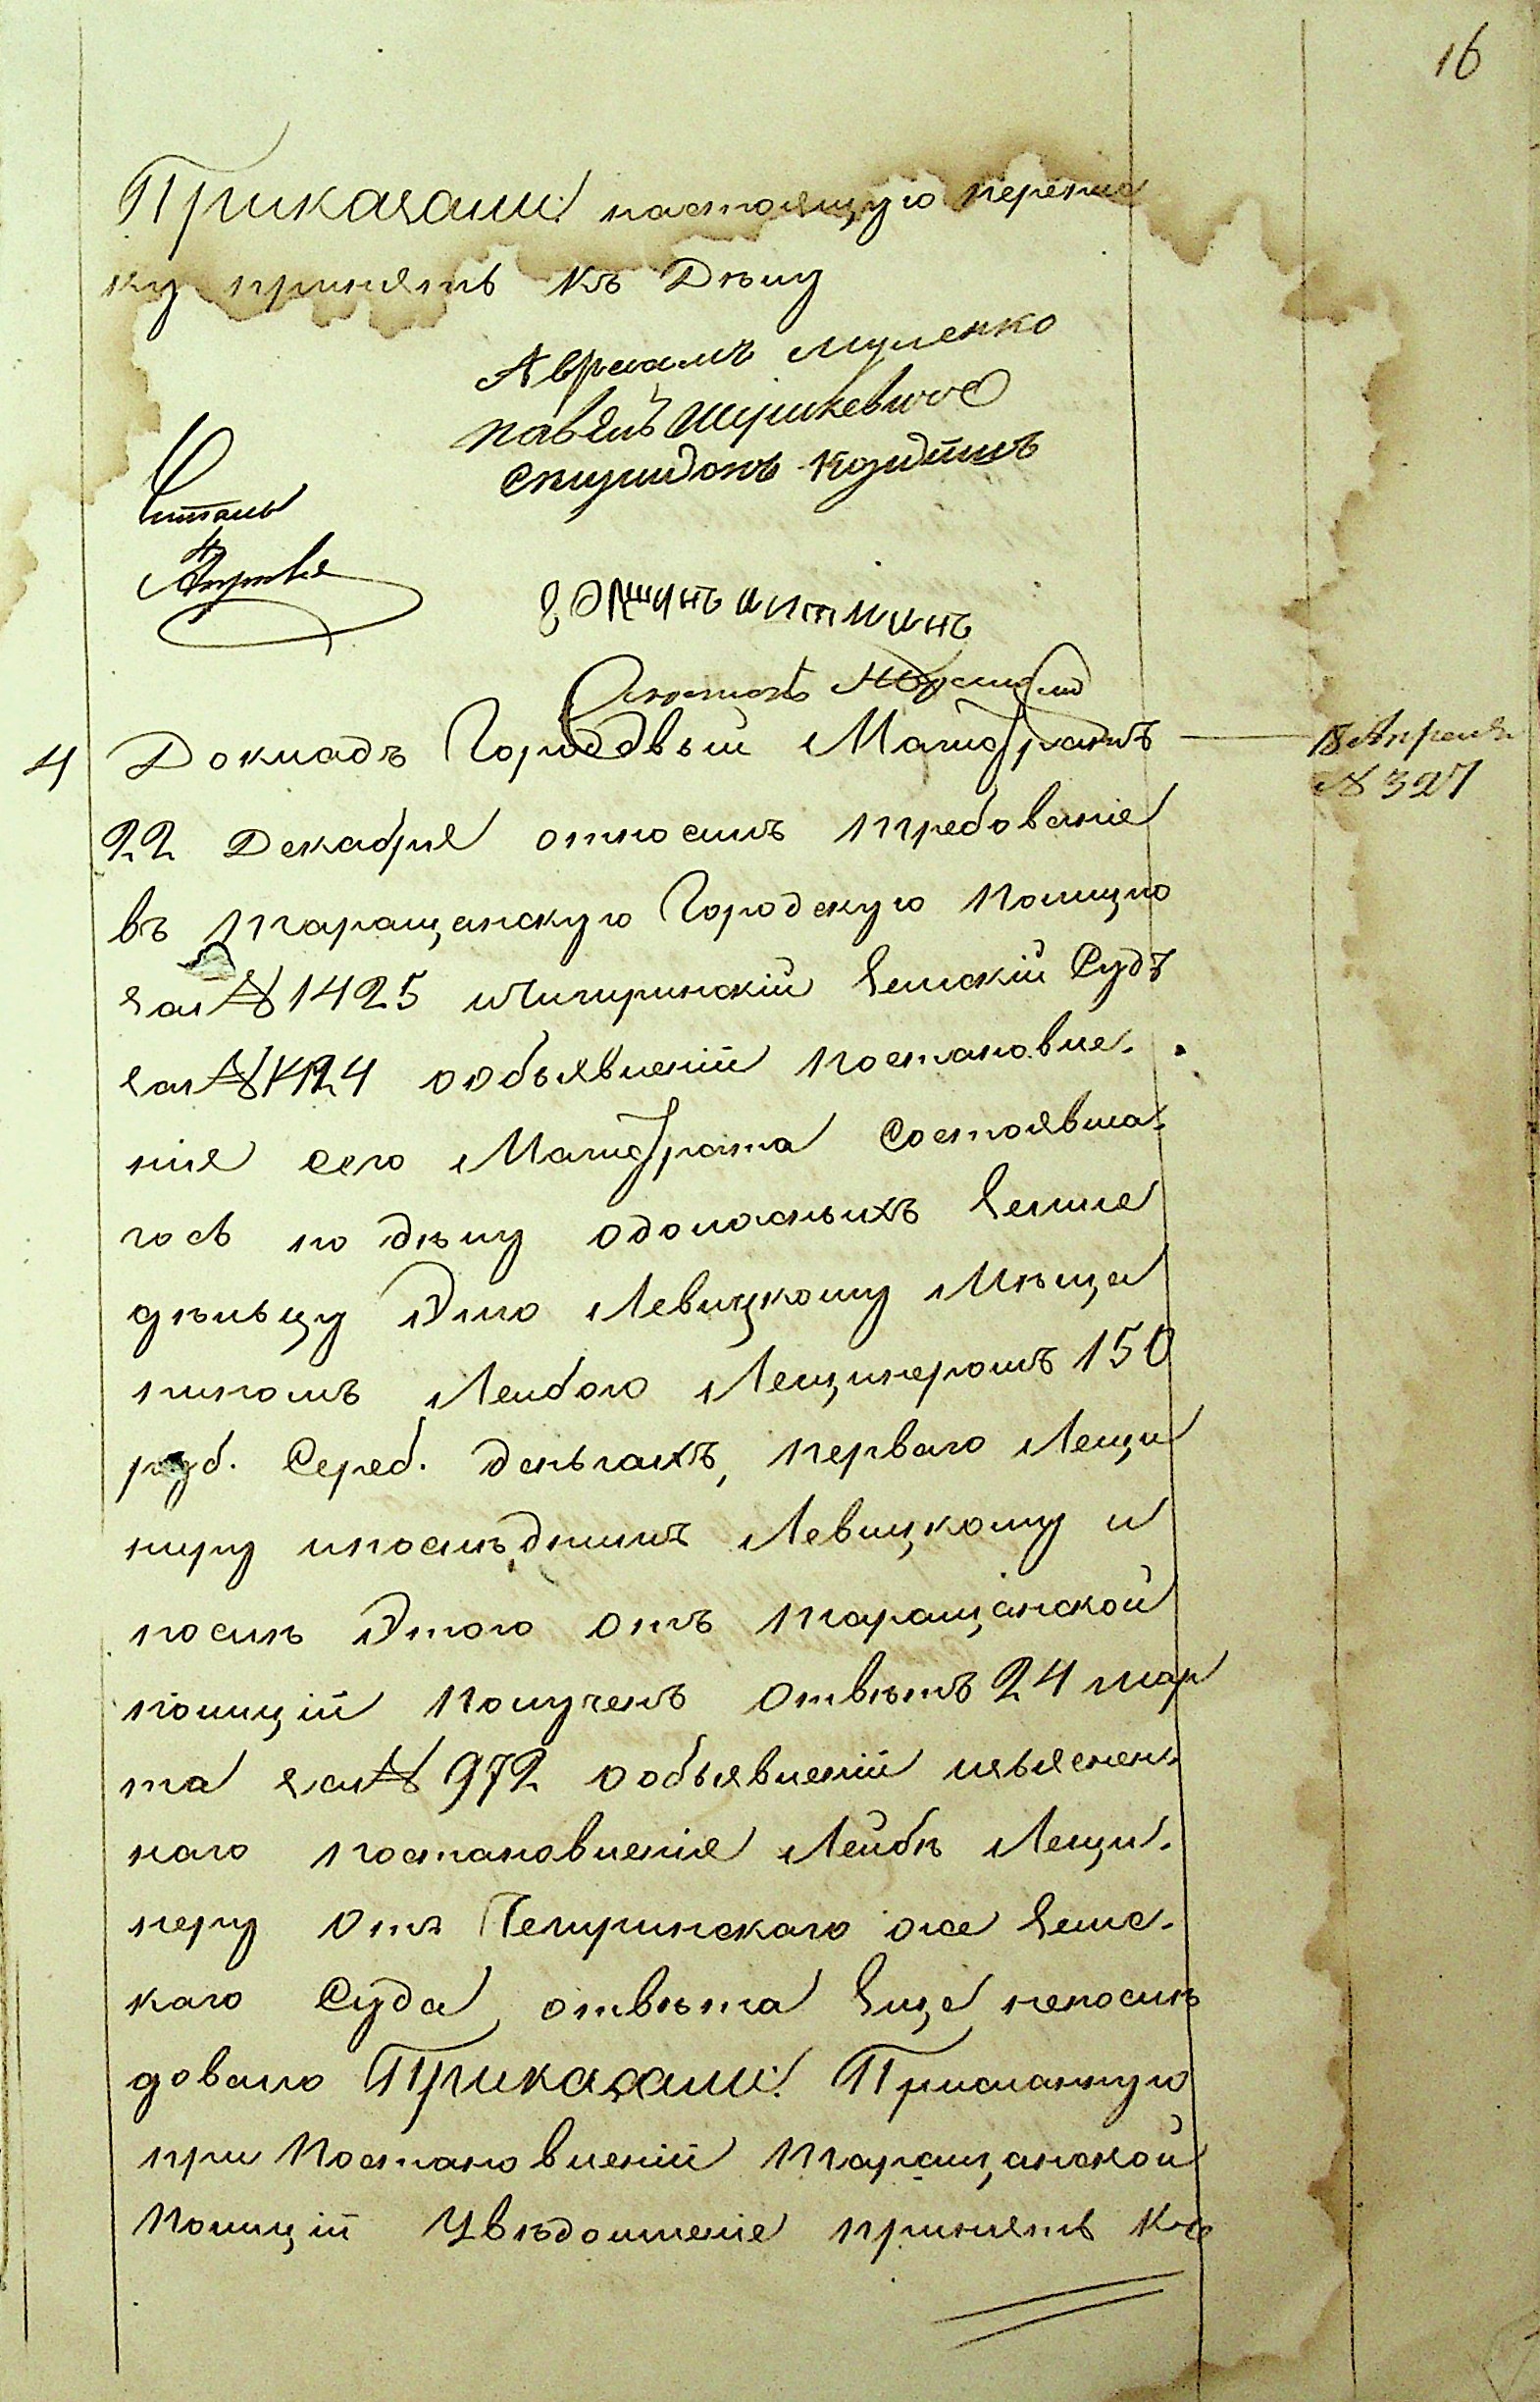 16
Приказали: настоящую перепис
ку принять къ Дѣлу
Авраамъ
Павелъ
Спиридонъ
Читалъ
4 Докладъ Городовый Магистратъ
18 Апреля
№ 327
22 Декабря относилъ требование
въ Таращанскую Городскую Полицию
за № 1425 и Чигиринскій Земскій Судъ
за № 1424 о объявленіи постановле-
ния сего Магистрата состоявша-
гось по дѣлу о должныхъ Земле
дѣльцу Левицкому Мѣща
ниномъ Лейбою Лещинеромъ 150
руб. Сереб. деньгахъ, первого Лещи
неру и послѣднимъ Левицкому и
послѣ Этого отъ Таращанской
полиціи получень отвѣтъ 24 мар
та за № 972 о объявленіи изъяснен-
наго постановленія Лейбѣ Лещи-
неру Отъ Чегиринскаго же Земс-
каго Суда отвѣта Еще непослѣ
довало Приказали: Присланную
при постановленіи Таращанской
Полиціи Увѣдомленіе принять къ